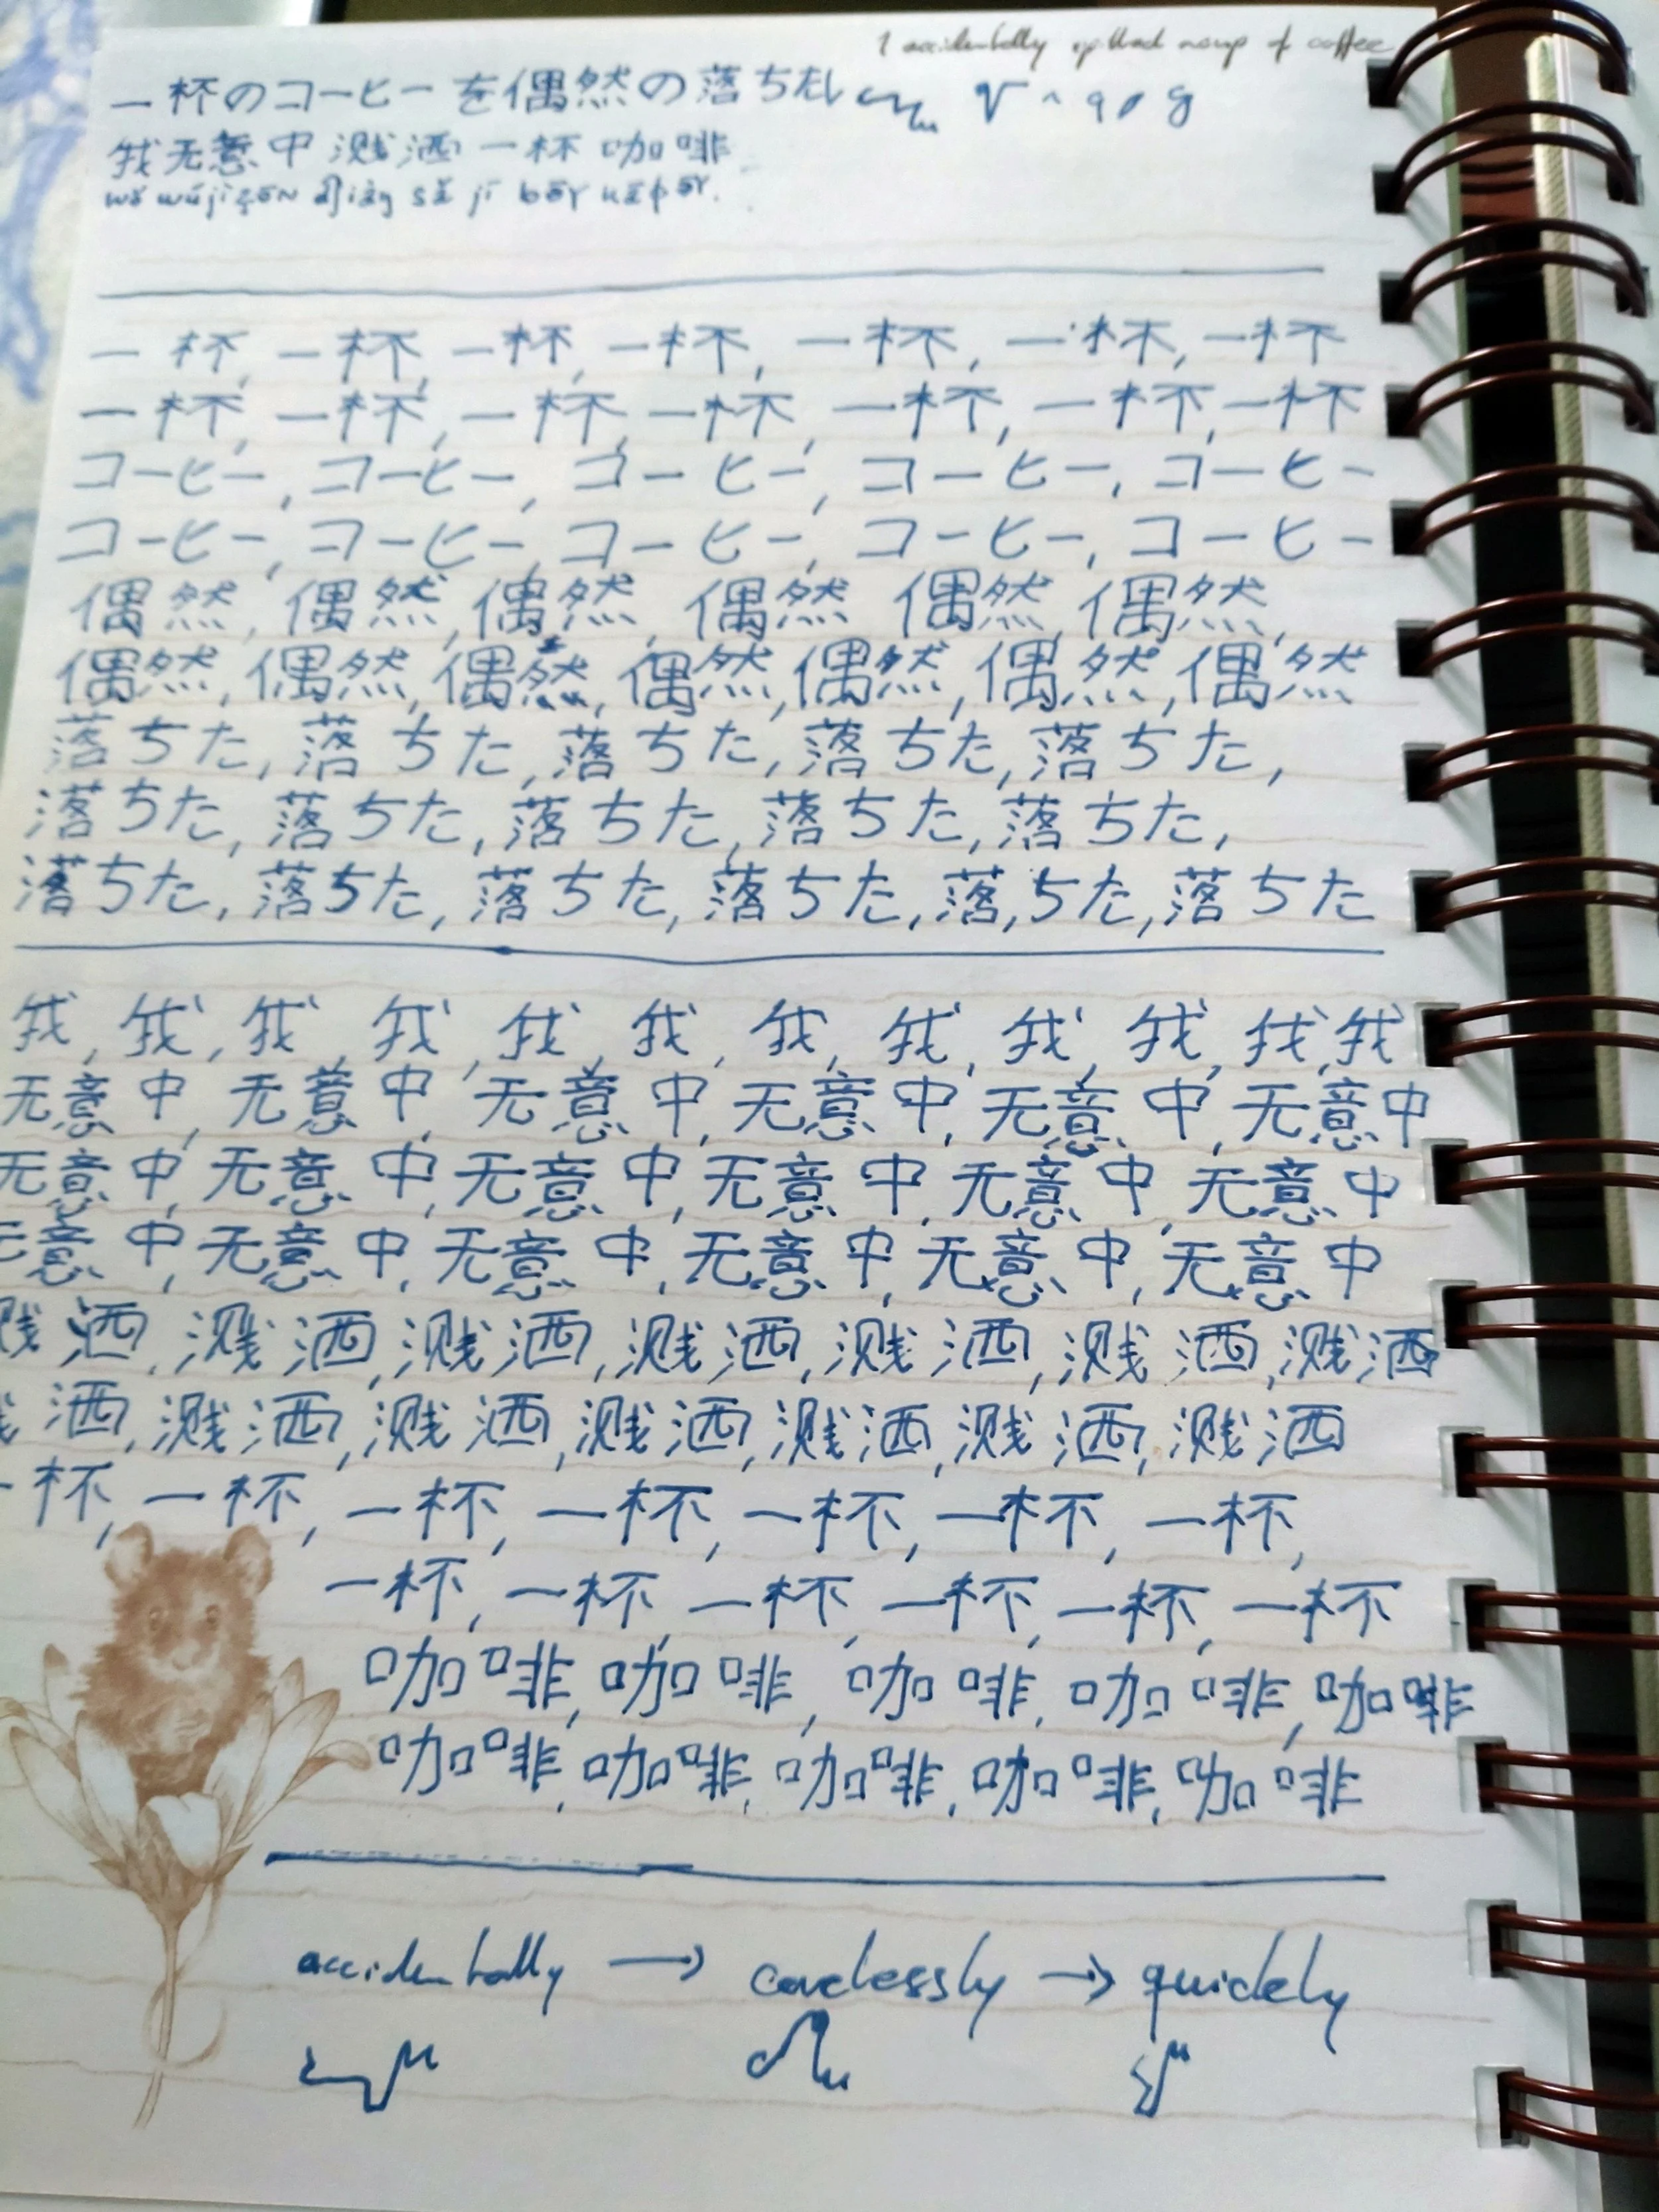 I accidentally spilled a cup of coffee
一杯のコーヒーを偶然の落ちた
我无意中溅洒一杯咖啡
一杯, 一杯, 一杯, 一杯, 一杯, 一杯, 一杯
一杯, 一杯, 一杯, 一杯, 一杯, 一杯, 一杯
コーヒー, コーヒー, コーヒー, コーヒー, コーヒー
コーヒー, コーヒー, コーヒー, コーヒー, コーヒー
偶然, 偶然, 偶然, 偶然 偶然, 偶然,
偶然, 偶然, 偶然, 偶然, 偶然, 偶然, 偶然
落ちた, 落ちた, 落ちた, 落ちた, 落ちた,
落ちた, 落ちた, 落ちた, 落ちた, 落ちた,
落ちた, 落ちた, 落ちた, 落ちた, 落ちた, 落ちた
我, 我, 我, 我, 我, 我, 我, 我, 我, 我, 我, 我
无意中, 无意中, 无意中, 无意中, 无意中, 无意中
无意中, 无意中, 无意中, 无意中, 无意中, 无意中
无意中, 无意中, 无意中, 无意中, 无意中, 无意中
溅洒, 溅洒, 溅洒, 溅洒, 溅洒, 溅洒, 溅洒
洒, 溅洒, 溅洒, 溅洒, 溅洒, 溅洒, 溅洒
一杯, 一杯, 一杯, 一杯, 一杯, 一杯, 一杯,
一杯, 一杯, 一杯, 一杯, 一杯, 一杯
咖啡, 咖啡, 咖啡, 咖啡, 咖啡
咖啡, 咖啡, 咖啡, 咖啡, 咖啡
accidentally → carelessly → quickly